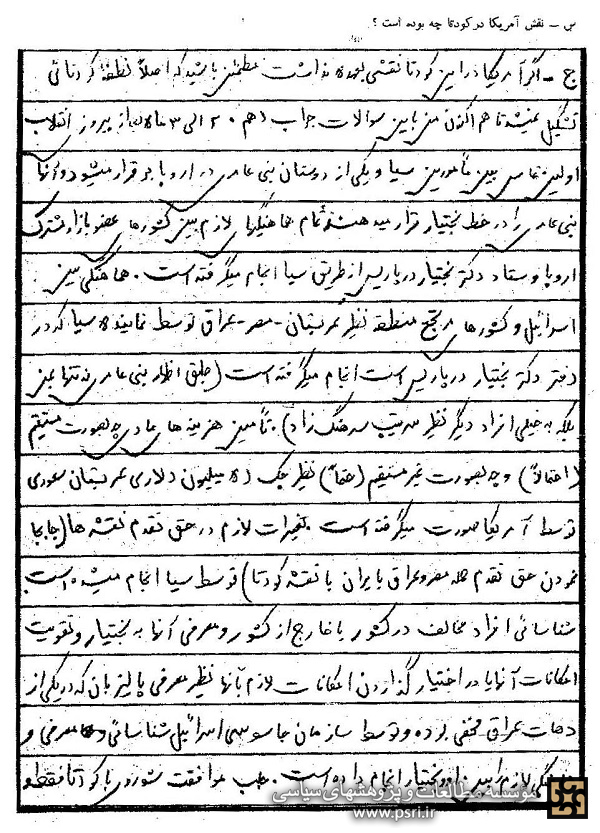 س ـ نقش آمریکا در کودتا چه بوده است ؟
ج ـ اگر آمریکا در این کودتا نقشی بعهده نداشت مطمئن باشید که اصلاً نطفه کودتائی
تشکیل نمیشد تا هم اکنون من باین سوالات جواب دهم ۲۰ الی ۳۰ ماه بعد از پیروزی انقلاب
اولین تماس بین مأمورین سیا و یکی از دوستان بنی عامری در اروپا برقرار میشود و آنها
بنی عامری را در خط بختیار قرار میدهند تمام هماهنگیهای لازم بین کشورهای عضو بازار مشترک
اروپا و ستاد دکتر بختیار در پاریس از طریق سیا انجام میگرفته است . هماهنگی بین
اسرائیل و کشورهای مرتجع منطقه نظیر عربستان ـ مصر ـ عراق توسط نماینده سیا که در
دفتر دکتر بختیار در پاریس است انجام میگرفته است ( طبق اظهار بنی عامری نه تنها بمن
بلکه به خیلی افراد دیگر نظیر سرتیپ سرهنگ زاد ) . تأمین هزینه های مادی چه بصورت مستقیم
( احتمالاً ) و چه بصورت غیر مستقیم ( حتماً ) نظیر چک ( ۵ میلیون دلاری عربستان سعودی
توسط آمریکا صورت میگرفته است . تغییرات لازم در حق تقدم نقشه ها ( جابجا
نمودن حق تقدم حمله مصر و عراق با ایران با نقشه کودتا ) توسط سیا انجام میشده است
شناسائی افراد مخالف در کشور یا خارج از کشور و معرفی آنها به بختیار و تقویت
امکانات آنها یا در اختیار گذاردن امکانات لازم بآنها نظیر معرفی پالیزبان که در یکی از
دهات عراق مخفی بوده و توسط سازمان جاسوسی اسرائیل شناسائی و معرفی و
لازم را بین او و بختیار انجام داده است . جلب موافقت شوروی با کودتا فقط و
مؤسسه مطالعات و پژوهشهای سیاسی
www.psri.ir